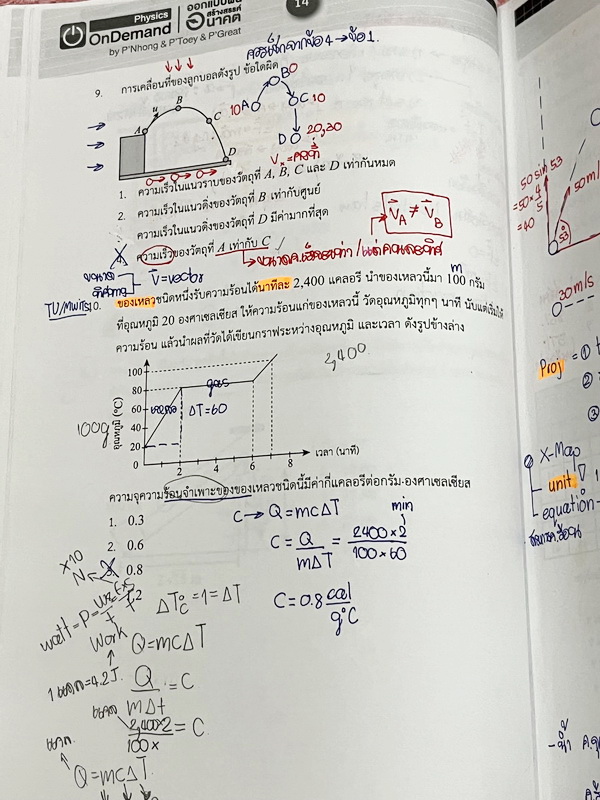 Physics
OnDemand
ออกแบบและ
สร้างสรรค์
อนาคต
by P'Nhong & P'Toey & P'Great
14
9. การเคลื่อนที่ของลูกบอลดังรูป ข้อใดผิด
A
u
B
C
D
10 A
B 0
C 10
D
20,30
1. ความเร็วในแนวราบของวัตถุที่ A, B, C และ D เท่ากันหมด
2. ความเร็วในแนวดิ่งของวัตถุที่ B เท่ากับศูนย์
ความเร็วในแนวดิ่งของวัตถุที่ D มีค่ามากที่สุด
ความเร็วของวัตถุที่ A เท่ากับ C
V⃗A ≠ V⃗B
V⃗ = vector
10. ของเหลวชนิดหนึ่งรับความร้อนได้นาทีละ 2,400 แคลอรี นำของเหลวนี้มา 100 กรัม
m
ที่อุณหภูมิ 20 องศาเซลเซียส ให้ความร้อนแก่ของเหลวนี้ วัดอุณหภูมิทุกๆ นาที นับแต่เริ่มให้
ความร้อน แล้วนำผลที่วัดได้เขียนกราฟระหว่างอุณหภูมิ และเวลา ดังรูปข้างล่าง
2,400
100g
อุณหภูมิ (°C)
100
80
60
40
20
0
gas
ΔT=60
2
4
6
8
เวลา (นาที)
ความจุความร้อนจำเพาะของของเหลวชนิดนี้มีค่ากี่แคลอรีต่อกรัม-องศาเซลเซียส
1. 0.3
2. 0.6
0.8
C → Q = mcΔT
min
C = Q/mΔT = 2400×2/100×60
C = 0.8 cal/g°C
×10
N
watt = P =
Work
ΔT°C = 1 = ΔT
Q = mcΔT
Q/mΔt = C
2,400×2/100× = C
Q = mcΔT
50 sin 53
=50×4/5
=40
50 m/s
53
30 m/s
Proj = ①
②
③
X-Map
unit
equation